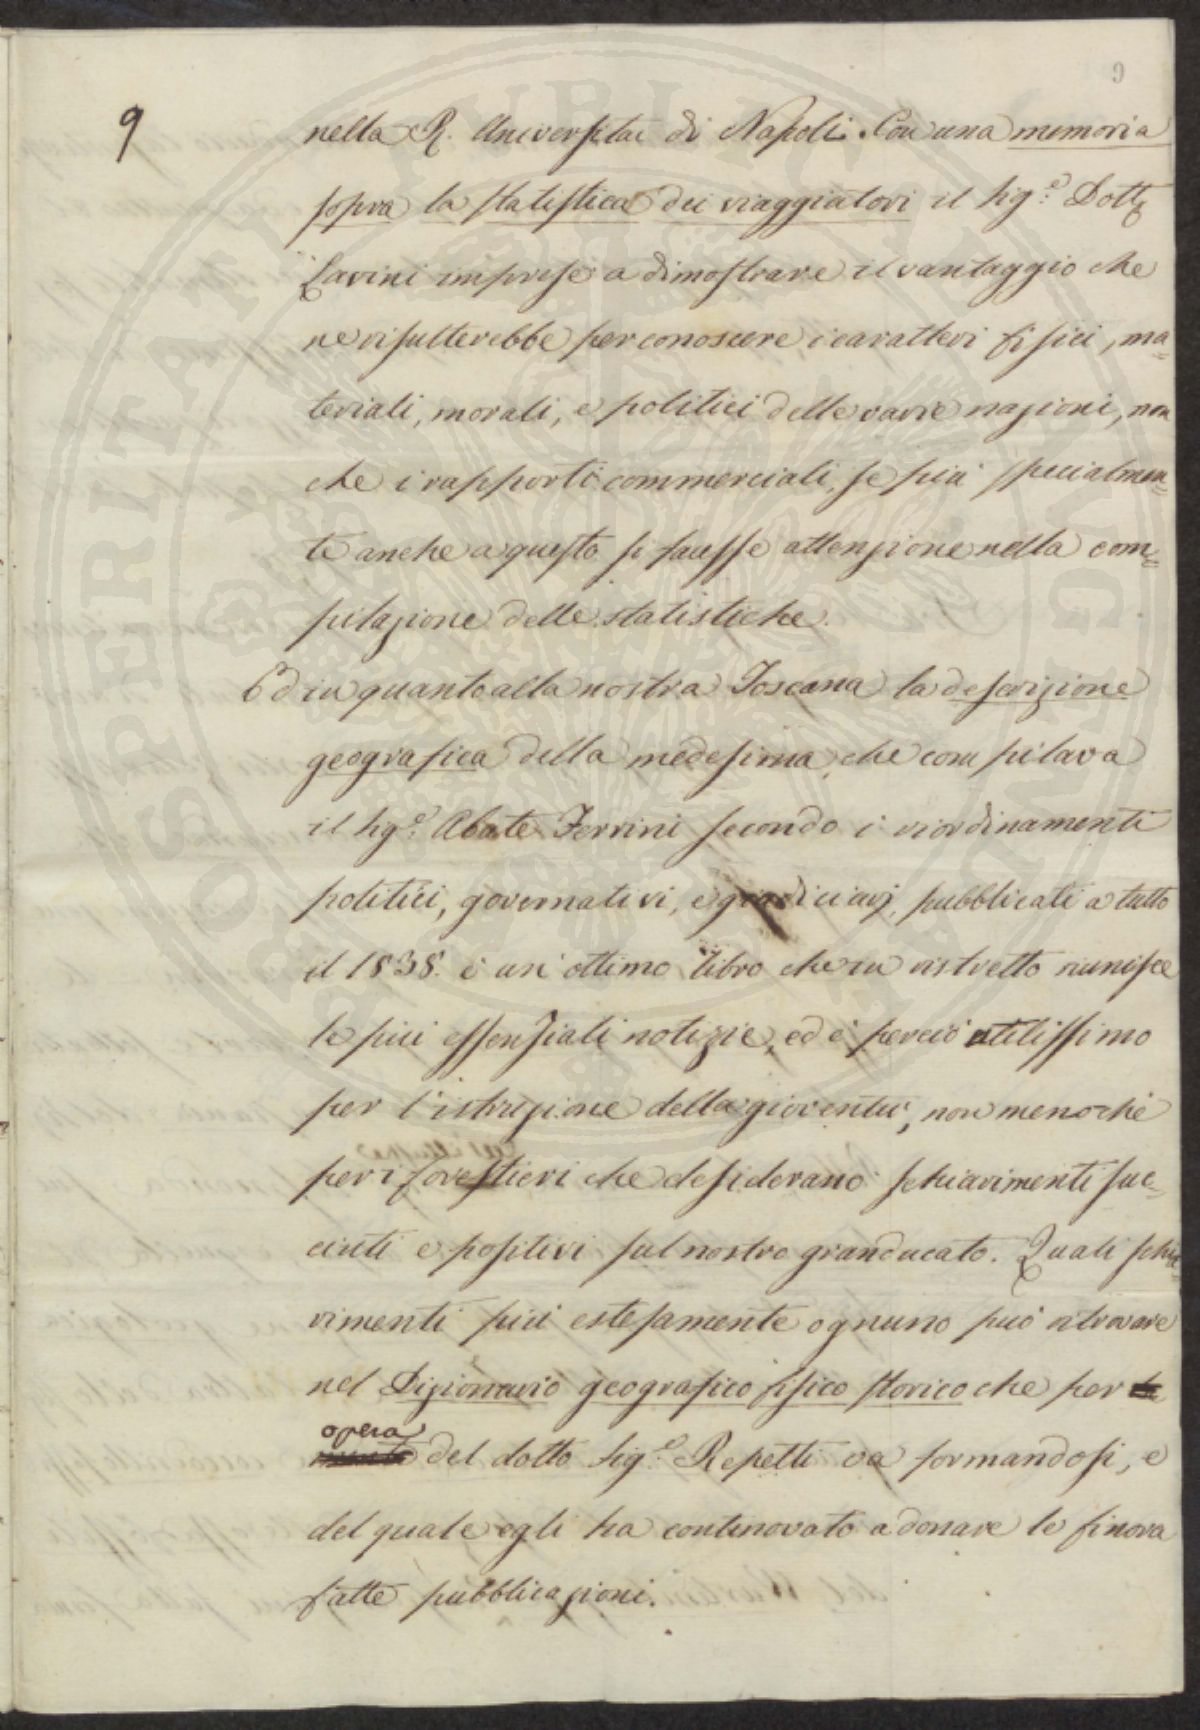 9
9
nella R. Università di Napoli. Con una memoria
sopra la statistica dei viaggiatori il Sig.e Dott.
Lavini imprese a dimostrare il vantaggio che
ne risulterebbe per conoscere i caratteri fisici, ma=
teriali, morali, e politici delle varie nazioni, non
che i rapporti commerciali, se più specialmen=
te anche a questo si facesse attenzione nella com=
pilazione delle statistiche.
Ed in quanto alla nostra Toscana la descrizione
geografica della medesima, che compilava
il Sig.e Abate Ferrini secondo i riordinamenti
politici, governativi, e giudiciarj, pubblicati a tutto
il 1838. è un' ottimo libro che in ristretto riunisce
le più essenziali notizie, ed è perciò utilissimo
per l'istruzione della gioventù, non meno che
per i forestieri che desiderano schiarimenti suc=
cinti e positivi sul nostro granducato. Quali schia=
rimenti più estesamente ognuno può ritrovare
nel Dizionario geografico fisico storico che per
opera
del dotto Sig.e Repetti va formandosi, e
del quale egli ha continovato a donare le finora
fatte pubblicazioni.
PROSPERITATI PUBLICAE AUGENDAE